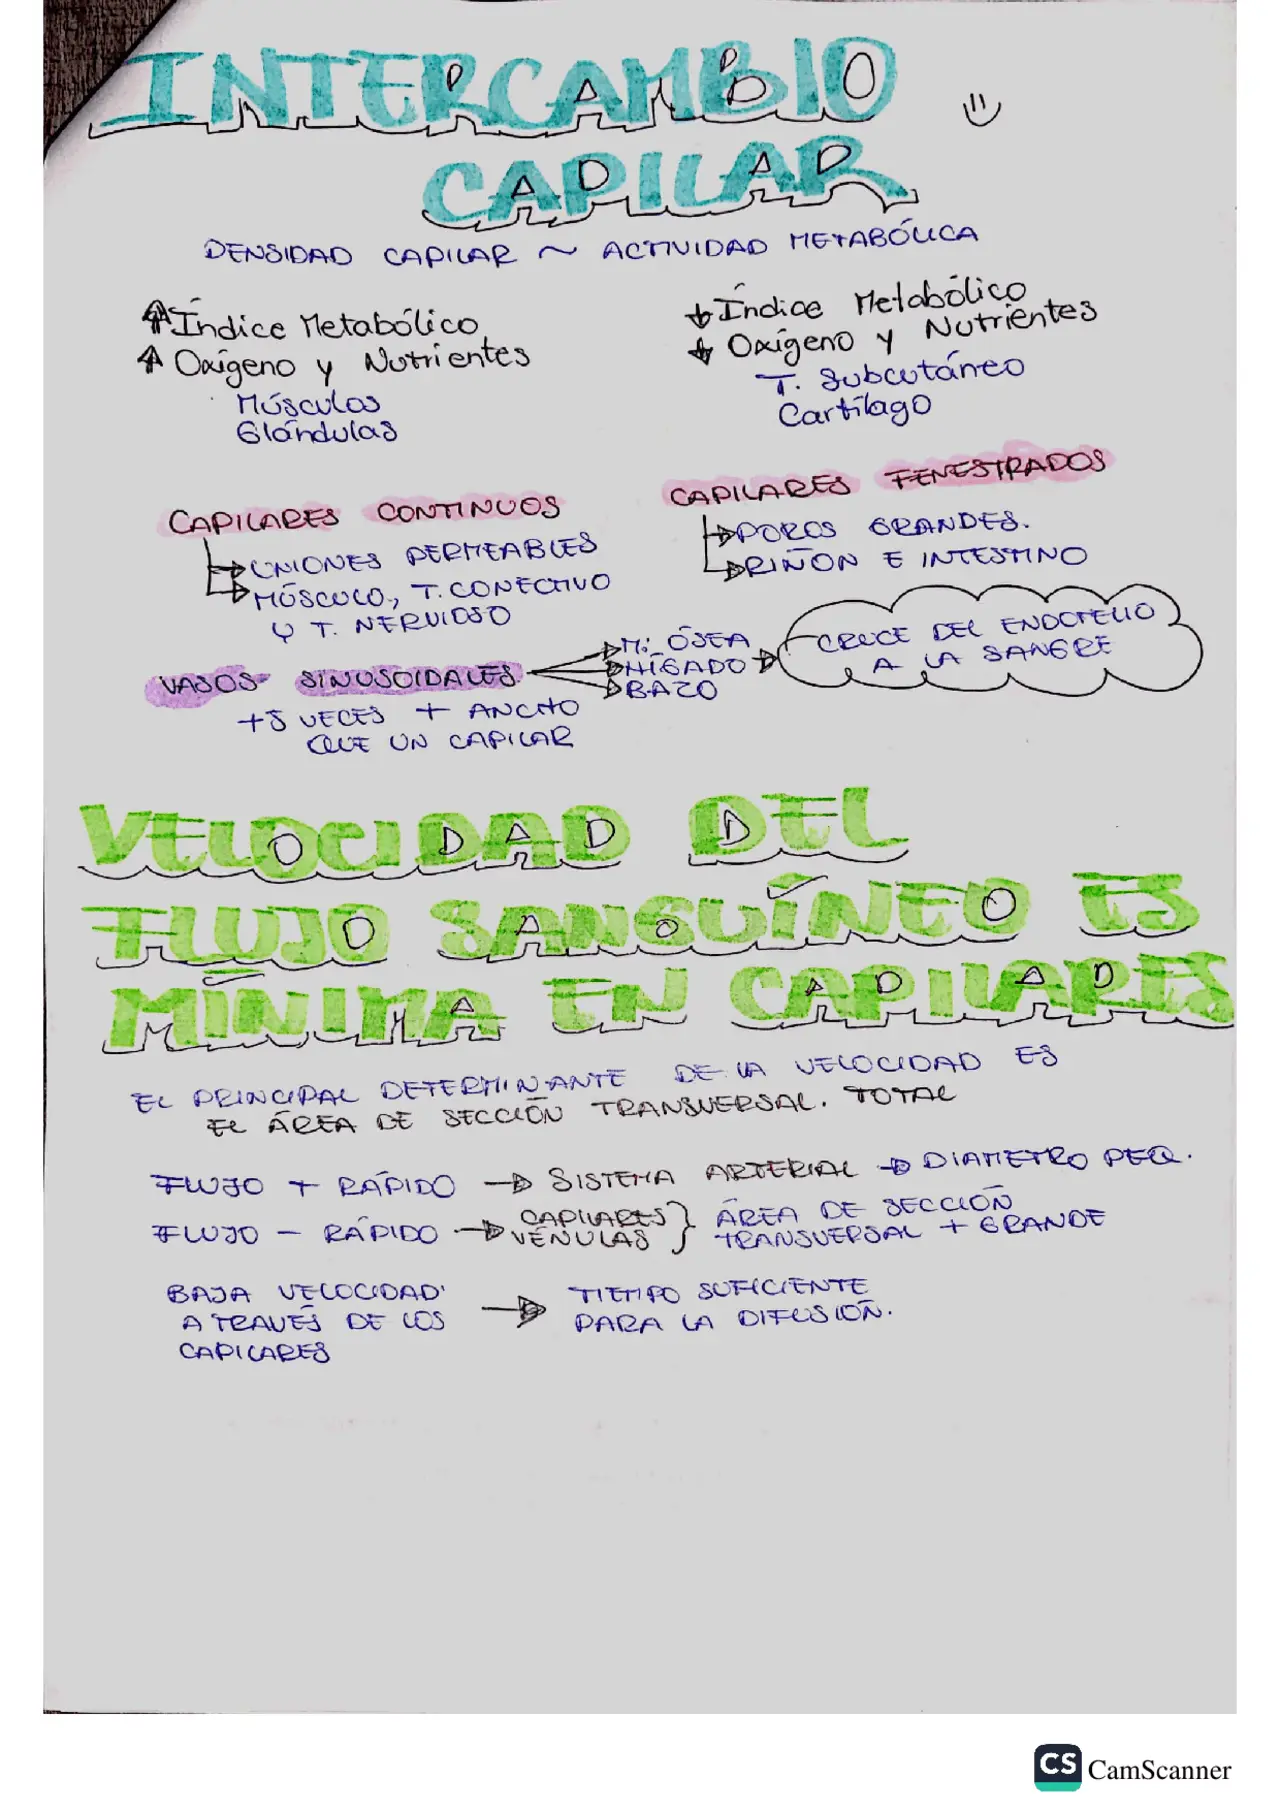 INTERCAMBIO
CAPILAR
DENSIDAD CAPILAR ~ ACTIVIDAD METABÓLICA
↑ Índice Metabólico
↑ Oxígeno y Nutrientes
Músculos
Glándulas
↓ Índice Metabólico
↓ Oxígeno y Nutrientes
T. Subcutáneo
Cartílago
CAPILARES CONTINUOS
→ UNIONES PERMEABLES
→ MÚSCULO, T. CONECTIVO
Y T. NERVIOSO
CAPILARES FENESTRADOS
→ POROS GRANDES.
→ RIÑON E INTESTINO
VASOS SINUSOIDALES
→ M. ÓSEA
→ HÍGADO →
→ BAZO
CRUCE DEL ENDOTELIO
A LA SANGRE
+5 VECES + ANCHO
QUE UN CAPILAR
VELOCIDAD DEL
FLUJO SANGUÍNEO ES
MÍNIMA EN CAPILARES
EL PRINCIPAL DETERMINANTE DE LA VELOCIDAD ES
EL ÁREA DE SECCIÓN TRANSVERSAL. TOTAL
FLUJO + RÁPIDO → SISTEMA ARTERIAL → DIAMETRO PEQ.
FLUJO - RÁPIDO → CAPILARES } ÁREA DE SECCIÓN
VÉNULAS TRANSVERSAL + GRANDE
BAJA VELOCIDAD → TIEMPO SUFICIENTE
A TRAVÉS DE LOS PARA LA DIFUSIÓN.
CAPILARES
CS CamScanner